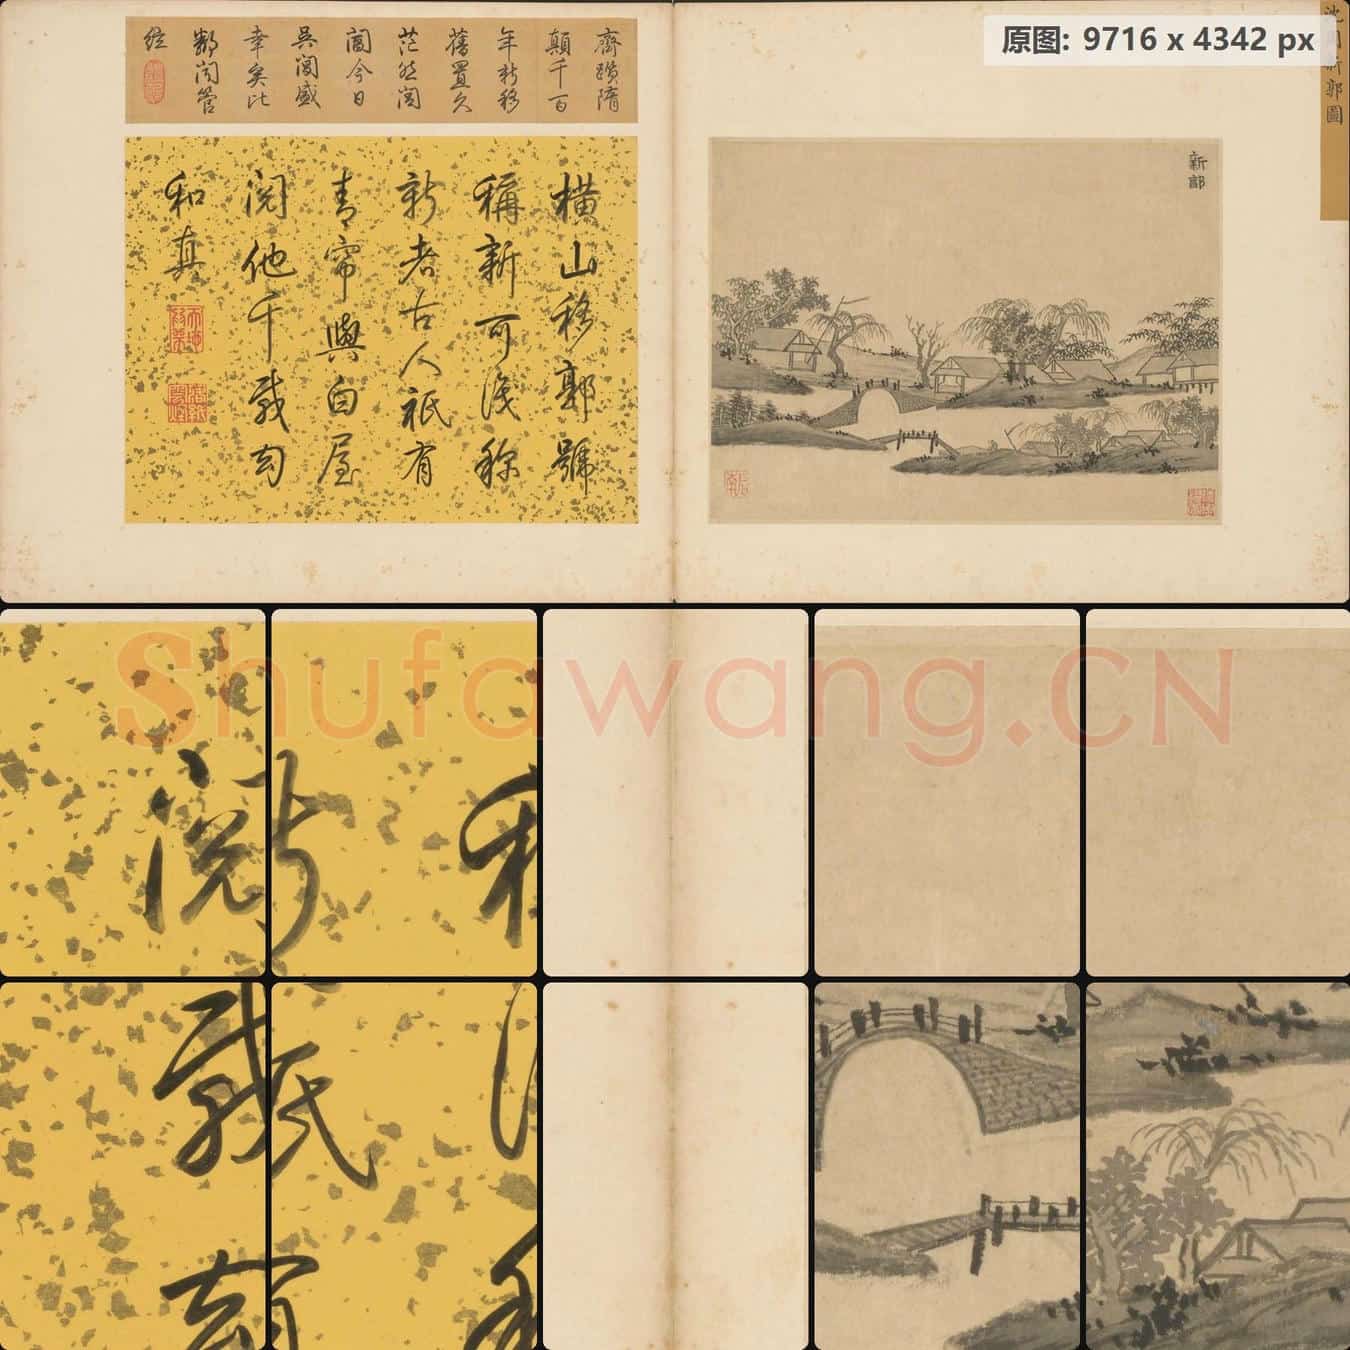 原图: 9716 x 4342 px
沈周新郭圖
新郭
齊躓隋
顛千百
年新移
舊置久
茫然閭
閻今日
吳閶盛
幸矣比
鄰聞管
絃
橫山移郭號
稱新可稱
新老古人祇有
青帘與白屋
閱他千載
和真
Shufawang.CN